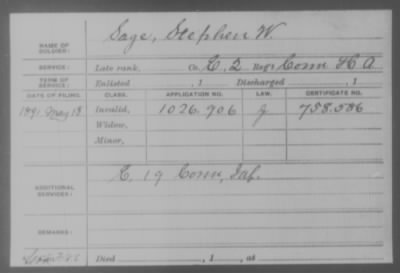 NAME OF SOLDIER: Sage, Stephen W.
SERVICE: Late rank, Co. E, 2 Reg't Conn H A
TERM OF SERVICE: Enlisted , 1 Discharged , 1
DATE OF FILING. CLASS. APPLICATION NO. LAW. CERTIFICATE NO.
1891 May 18 Invalid, 1026.906 J 758.586
Widow,
Minor,
ADDITIONAL SERVICES: C. 19 Conn, Inf.
REMARKS:
Died , 1 , at